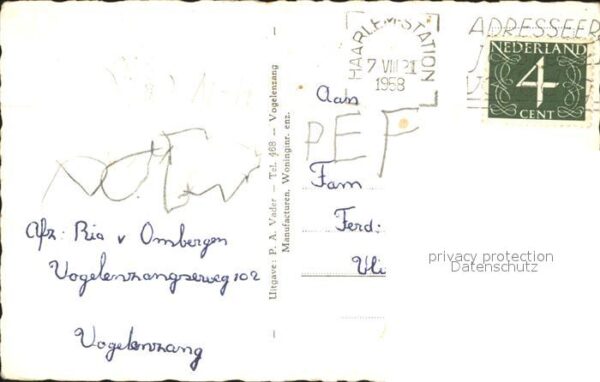 HAARLEM-STATION
7 VIII 21
1958
ADRESSEER
NEDERLAND
4
CENT
Aan
PEF
Fam
Ferd:
Vli
Afz: Ria v Ombergen
Vogelenzangseweg 102
Vogelenzang
Uitgave: P. A. Vader — Tel. 468 — Vogelenzang
Manufacturen, Woninginr. enz.
privacy protection
Datenschutz